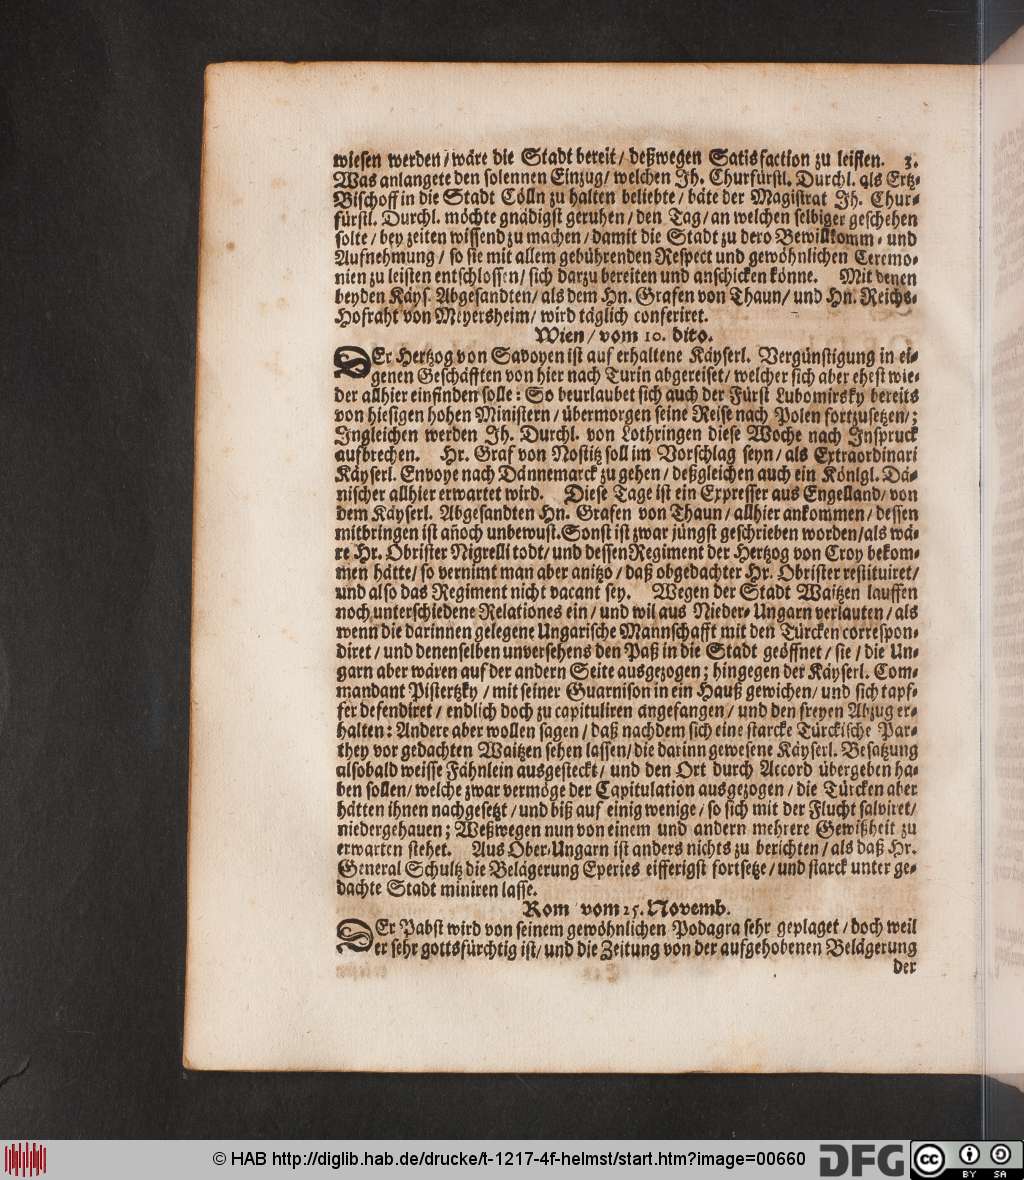 wiesen werden / wäre die Stadt bereit / deßwegen Satisfaction zu leisten. 3.
Was anlangete den solennen Einzug / welchen Jh. Churfürstl. Durchl. als Ertz-
Bischoff in die Stadt Cölln zu halten beliebte / bäte der Magistrat Jh. Chur-
fürstl. Durchl. möchte gnädigst geruhen / den Tag / an welchen selbiger geschehen
solte / bey zeiten wissend zu machen / damit die Stadt zu dero Bewillkomm- und
Aufnehmung / so sie mit allem gebührenden Respect und gewöhnlichen Ceremo-
nien zu leisten entschlossen / sich darzu bereiten und anschicken könne. Mit denen
beyden Käys. Abgesandten / als dem Hn. Grafen von Thaun / und Hn. Reichs-
Hofraht von Meyersheim / wird täglich conferiret.
Wien / vom 10. dito.
DEr Hertzog von Savoyen ist auf erhaltene Käyserl. Vergünstigung in ei-
genen Geschäfften von hier nach Turin abgereiset / welcher sich aber ehest wie-
der allhier einfinden solle: So beurlaubet sich auch der Fürst Lubomirsky bereits
von hiesigen hohen Ministern / übermorgen seine Reise nach Polen fortzusetzen /;
Jngleichen werden Jh. Durchl. von Lothringen diese Woche nach Jnspruck
aufbrechen. Hr. Graf von Nostitz soll im Vorschlag seyn / als Extraordinari
Käyserl. Envoye nach Dännemarck zu gehen / deßgleichen auch ein Königl. Dä-
nischer allhier erwartet wird. Diese Tage ist ein Expresser aus Engelland / von
dem Käyserl. Abgesandten Hn. Grafen von Thaun / allhier ankommen / dessen
mitbringen ist añoch unbewust. Sonst ist zwar jüngst geschrieben worden / als wä-
re Hr. Obrister Nigrelli todt / und dessen Regiment der Hertzog von Croy bekom-
men hätte / so vernimt man aber anitzo / daß obgedachter Hr. Obrister restituiret /
und also das Regiment nicht vacant sey. Wegen der Stadt Waitzen lauffen
noch unterschiedene Relationes ein / und wil aus Nieder-Ungarn verlauten / als
wenn die darinnen gelegene Ungarische Mannschafft mit den Türcken correspon-
diret / und denenselben unversehens den Paß in die Stadt geöffnet / sie / die Un-
garn aber wären auf der andern Seite ausgezogen; hingegen der Käyserl. Com-
mandant Pistertzky / mit seiner Guarnison in ein Hauß gewichen / und sich tapf-
fer defendiret / endlich doch zu capituliren angefangen / und den freyen Abzug er-
halten: Andere aber wollen sagen / daß nachdem sich eine starcke Türckische Par-
they vor gedachten Waitzen sehen lassen / die darinn gewesene Käyserl. Besatzung
alsobald weisse Fähnlein ausgesteckt / und den Ort durch Accord übergeben ha-
ben sollen / welche zwar vermöge der Capitulation ausgezogen / die Türcken aber
hätten ihnen nachgesetzt / und biß auf einig wenige / so sich mit der Flucht salviret /
niedergehauen; Weßwegen nun von einem und andern mehrere Gewißheit zu
erwarten stehet. Aus Ober-Ungarn ist anders nichts zu berichten / als daß Hr.
General Schultz die Belägerung Eperies eifferigst fortsetze / und starck unter ge-
dachte Stadt miniren lasse.
Rom vom 25. Novemb.
DEr Pabst wird von seinem gewöhnlichen Podagra sehr geplaget / doch weil
er sehr gottsfürchtig ist / und die Zeitung von der aufgehobenen Belägerung
der
© HAB http://diglib.hab.de/drucke/t-1217-4f-helmst/start.htm?image=00660
DFG
cc
BY SA